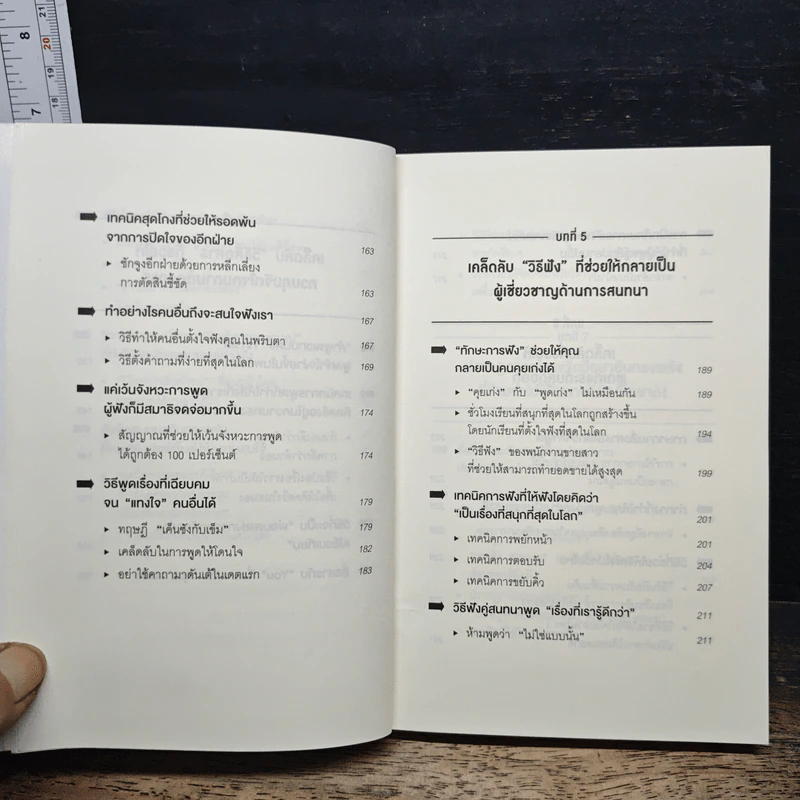 8
20
19
7
18
17
➡ เทคนิคสุดโกงที่ช่วยให้รอดพ้น
จากการปิดใจของอีกฝ่าย 163
▸ ชักจูงอีกฝ่ายด้วยการหลีกเลี่ยง
การตัดสินชี้ชัด 163
➡ ทำอย่างไรคนอื่นถึงจะสนใจฟังเรา 167
▸ วิธีทำให้คนอื่นตั้งใจฟังคุณในพริบตา 167
▸ วิธีตั้งคำถามที่ง่ายที่สุดในโลก 169
➡ แค่เว้นจังหวะการพูด
ผู้ฟังก็มีสมาธิจดจ่อมากขึ้น 174
▸ สัญญาณที่ช่วยให้เว้นจังหวะการพูด
ได้ถูกต้อง 100 เปอร์เซ็นต์ 174
➡ วิธีพูดเรื่องที่เฉียบคม
จน “แทงใจ” คนอื่นได้ 179
▸ ทฤษฎี “เค็นซังกับเข็ม” 179
▸ เคล็ดลับในการพูดให้โดนใจ 182
▸ อย่าใช้คาถามาดันเต้ในเดตแรก 183
บทที่ 5
เคล็ดลับ “วิธีฟัง” ที่ช่วยให้กลายเป็น
ผู้เชี่ยวชาญด้านการสนทนา
➡ “ทักษะการฟัง” ช่วยให้คุณ
กลายเป็นคนคุยเก่งได้ 189
▸ “คุยเก่ง” กับ “พูดเก่ง” ไม่เหมือนกัน 189
▸ ชั่วโมงเรียนที่สนุกที่สุดในโลกถูกสร้างขึ้น
โดยนักเรียนที่ตั้งใจฟังที่สุดในโลก 194
▸ “วิธีฟัง” ของพนักงานขายสาว
ที่ช่วยให้สามารถทำยอดขายได้สูงสุด 199
➡ เทคนิคการฟังที่ให้ฟังโดยคิดว่า
“เป็นเรื่องที่สนุกที่สุดในโลก” 201
▸ เทคนิคการพยักหน้า 201
▸ เทคนิคการตอบรับ 204
▸ เทคนิคการขยับคิ้ว 207
➡ วิธีฟังคู่สนทนาพูด “เรื่องที่เรารู้ดีกว่า” 211
▸ ห้ามพูดว่า “ไม่ใช่แบบนั้น” 211